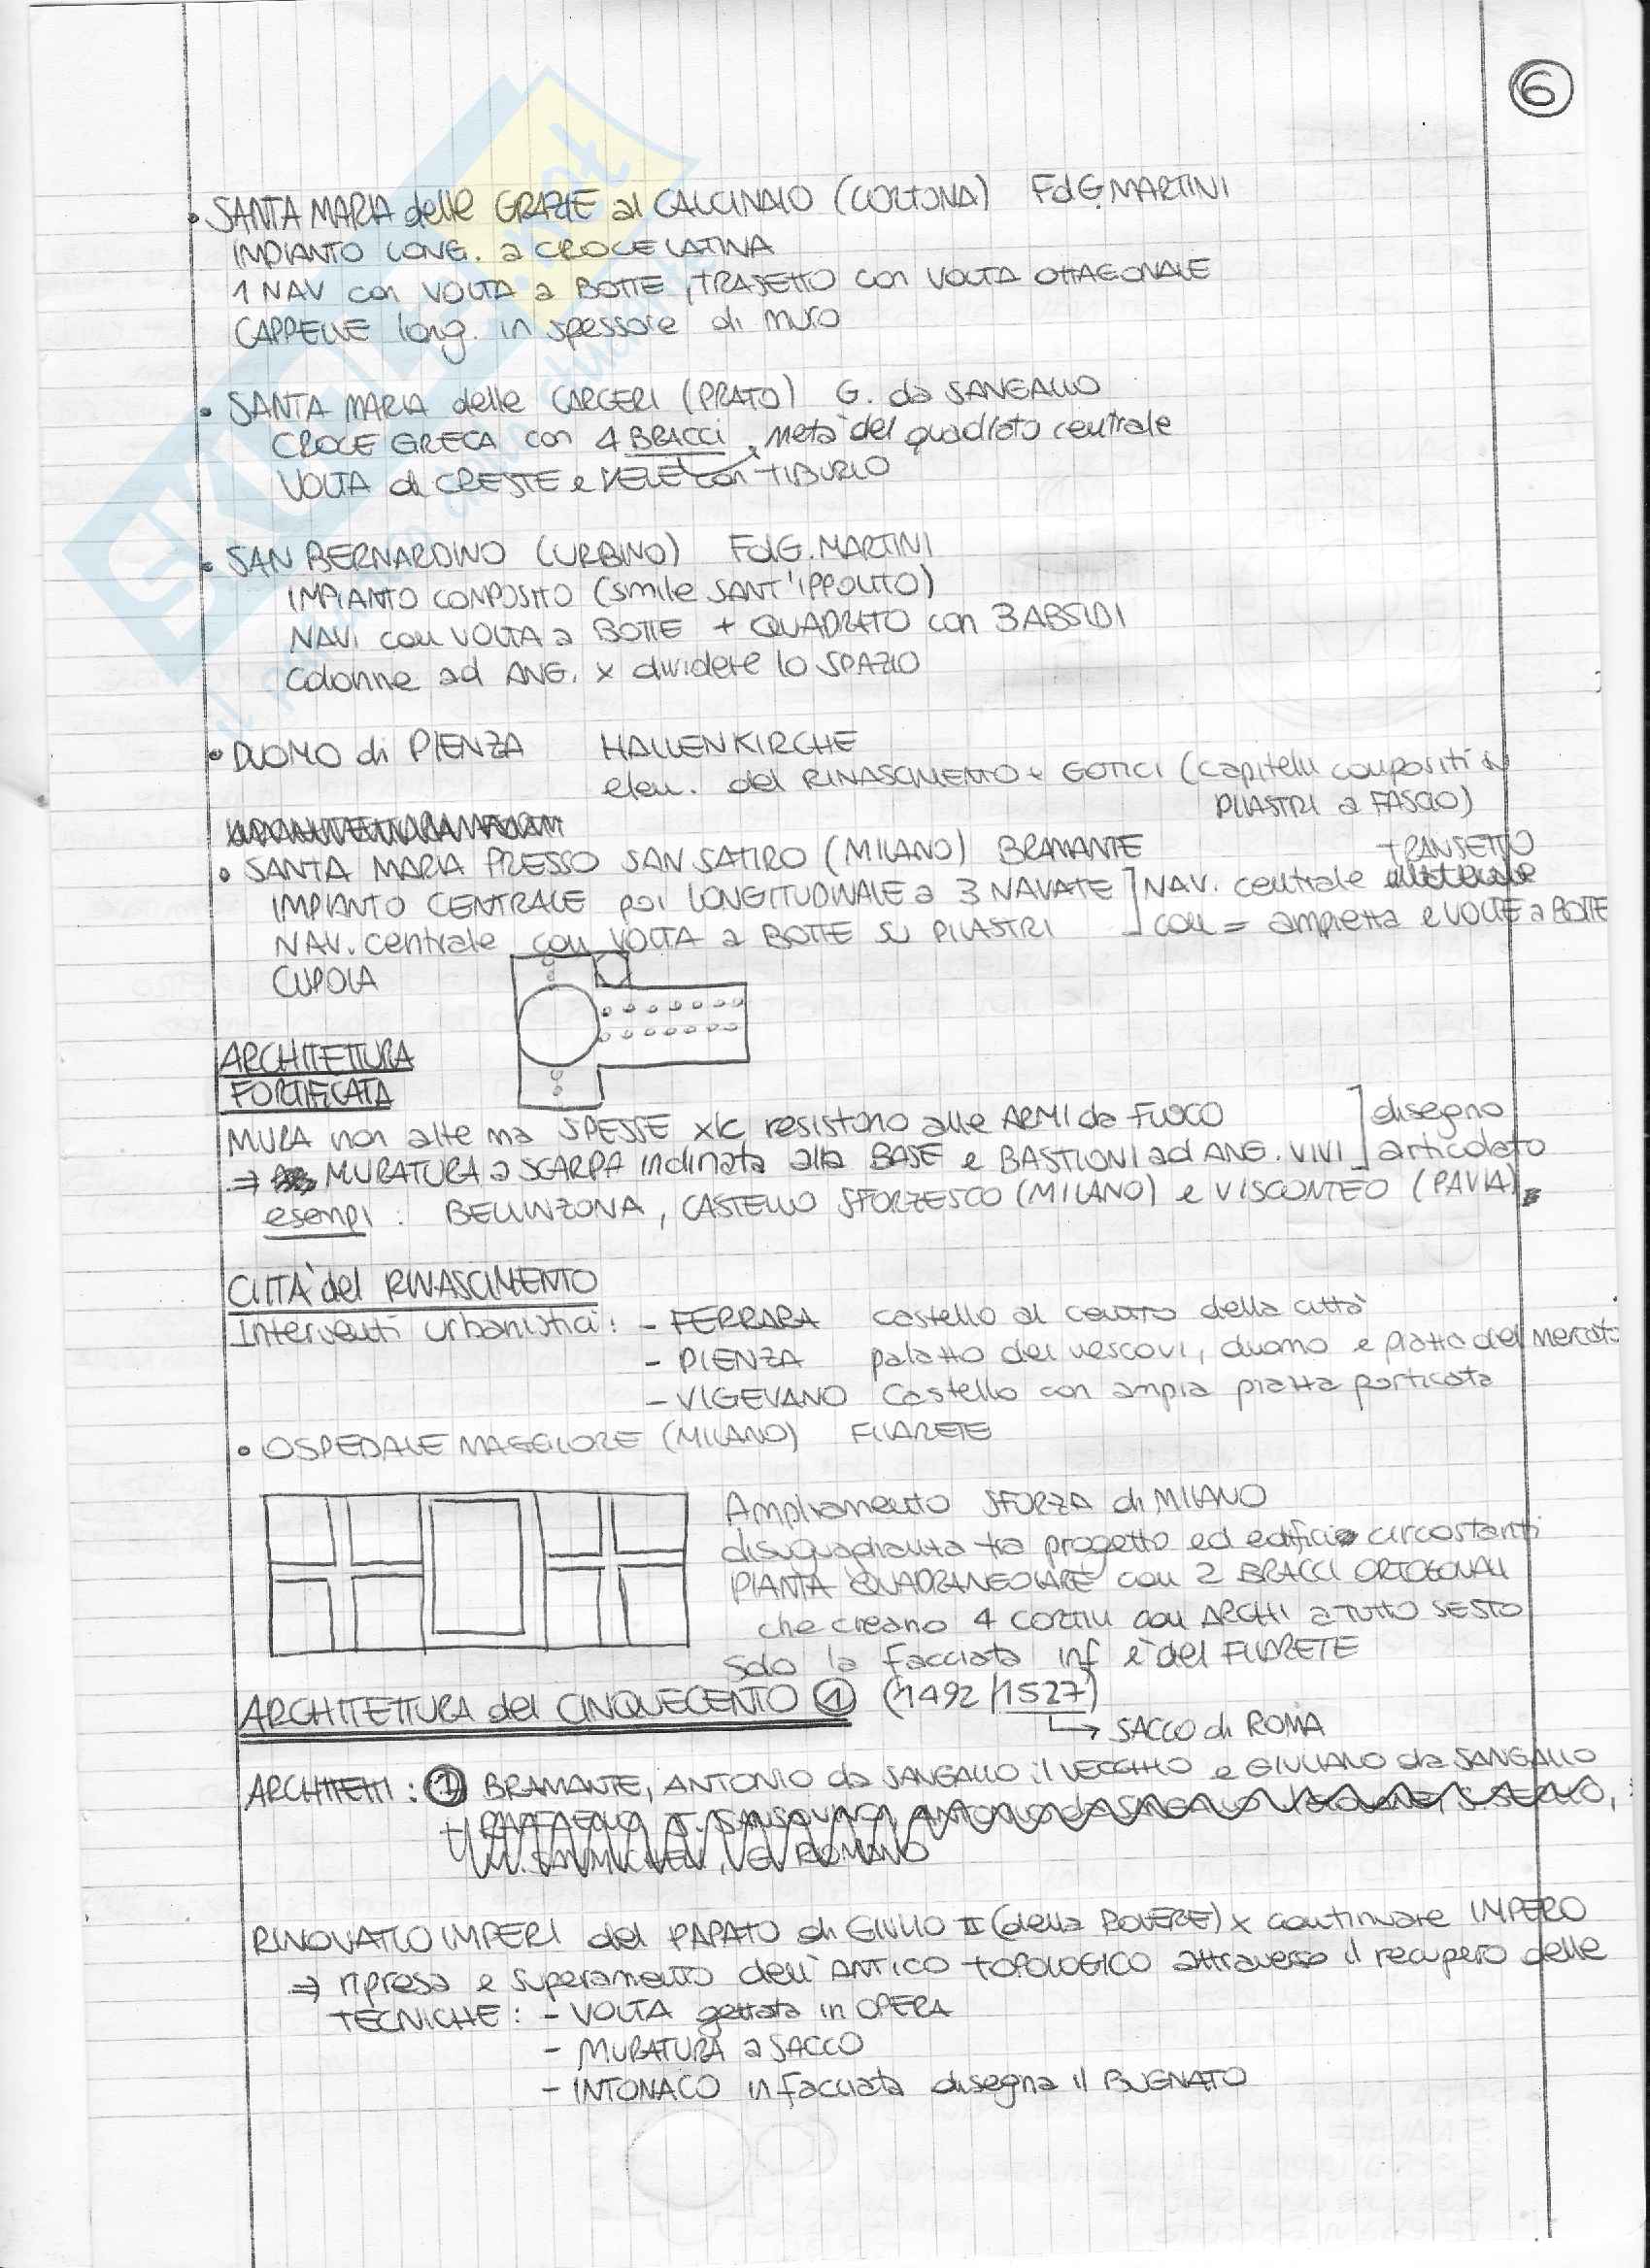 6
• SANTA MARIA delle GRAZIE al CALCINAIO (CORTONA) FdG.MARTINI
IMPIANTO LONG. a CROCE LATINA
1 NAV con VOLTA a BOTTE, TRASETTO con VOLTA OTTAGONALE
CAPPELLE long. in spessore di muro
• SANTA MARIA delle CARCERI (PRATO) G. da SANGALLO
CROCE GRECA con 4 BRACCI, metà del quadrato centrale
VOLTA di CRESTE e VELE con TIBURIO
• SAN BERNARDINO (URBINO) FdG.MARTINI
IMPIANTO COMPOSITO (simile SANT'IPPOLITO)
NAVI con VOLTA a BOTTE + QUADRATO con 3 ABSIDI
Colonne ad ANG. x dividere lo SPAZIO
• DUOMO di PIENZA HALLENKIRCHE
elem. del RINASCIMENTO + GOTICI (capitelli compositi su
PILASTRI a FASCIO)
• SANTA MARIA PRESSO SAN SATIRO (MILANO) BRAMANTE
TRANSETTO
IMPIANTO CENTRALE poi LONGITUDINALE a 3 NAVATE ] NAV. centrale
NAV. centrale con VOLTA a BOTTE su PILASTRI ] con = ampiezza e VOLTE a BOTTE
CUPOLA
ARCHITETTURA
FORTIFICATA
MURA non alte ma SPESSE xk resistono alle ARMI da FUOCO ] disegno
⇒ MURATURA a SCARPA inclinata alla BASE e BASTIONI ad ANG. VIVI ] articolato
esempi : BELLINZONA, CASTELLO SFORZESCO (MILANO) e VISCONTEO (PAVIA)
CITTÀ del RINASCIMENTO
Interventi urbanistici : - FERRARA castello al centro della città
- PIENZA palazzo dei vescovi, duomo e piazza del mercato
- VIGEVANO Castello con ampia piazza porticata
• OSPEDALE MAGGIORE (MILANO) FILARETE
Ampliamento SFORZA di MILANO
disuguaglianza tra progetto ed edifici circostanti
PIANTA QUADRANGOLARE con 2 BRACCI ORTOGONALI
che creano 4 CORTILI con ARCHI a TUTTO SESTO
Solo la facciata inf è del FILARETE
ARCHITETTURA del CINQUECENTO 1 (1492/1527)
↳ SACCO di ROMA
ARCHITETTI : 1 BRAMANTE, ANTONIO da SANGALLO il VECCHIO e GIULIANO da SANGALLO
RAFFAELLO, J. SANSOVINO, ANTONIO da SANGALLO GIOVANE, S. SERLIO,
M. SANMICHELI, G. ROMANO
RINOVATIO IMPERI del PAPATO di GIULIO II (della ROVERE) x continuare IMPERO
⇒ ripresa e superamento dell'ANTICO TOPOLOGICO attraverso il recupero delle
TECNICHE : - VOLTA gettata in OPERA
- MURATURA a SACCO
- INTONACO in facciata disegna il BUGNATO